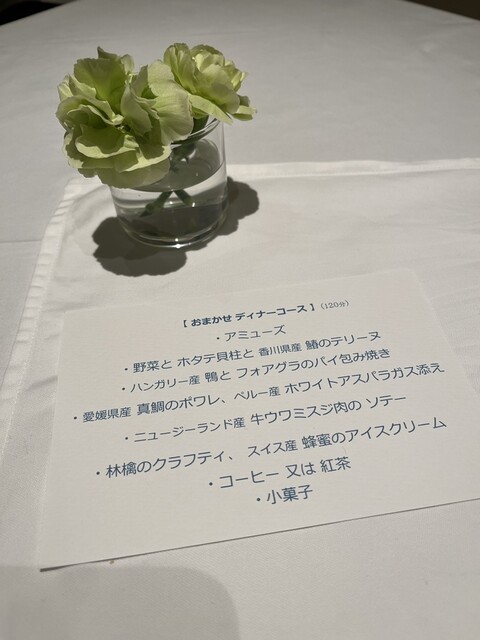 【 おまかせ ディナーコース 】（120分）
・アミューズ
・野菜と ホタテ貝柱と 香川県産 鰆のテリーヌ
・ハンガリー産 鴨と フォアグラのパイ包み焼き
・愛媛県産 真鯛のポワレ、ペルー産 ホワイトアスパラガス添え
・ニュージーランド産 牛ウワミスジ肉の ソテー
・林檎のクラフティ、 スイス産 蜂蜜のアイスクリーム
・コーヒー 又は 紅茶
・小菓子